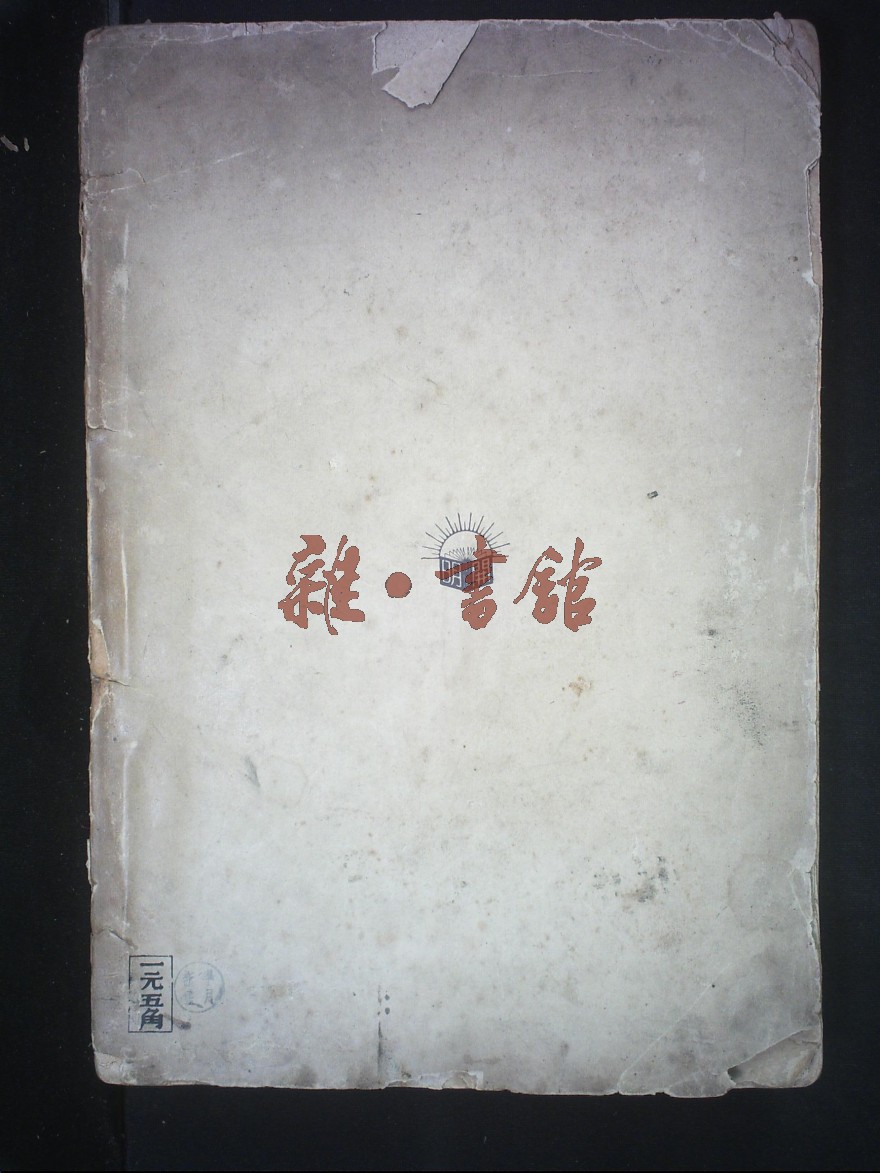 雜·書館
開明
一元五角